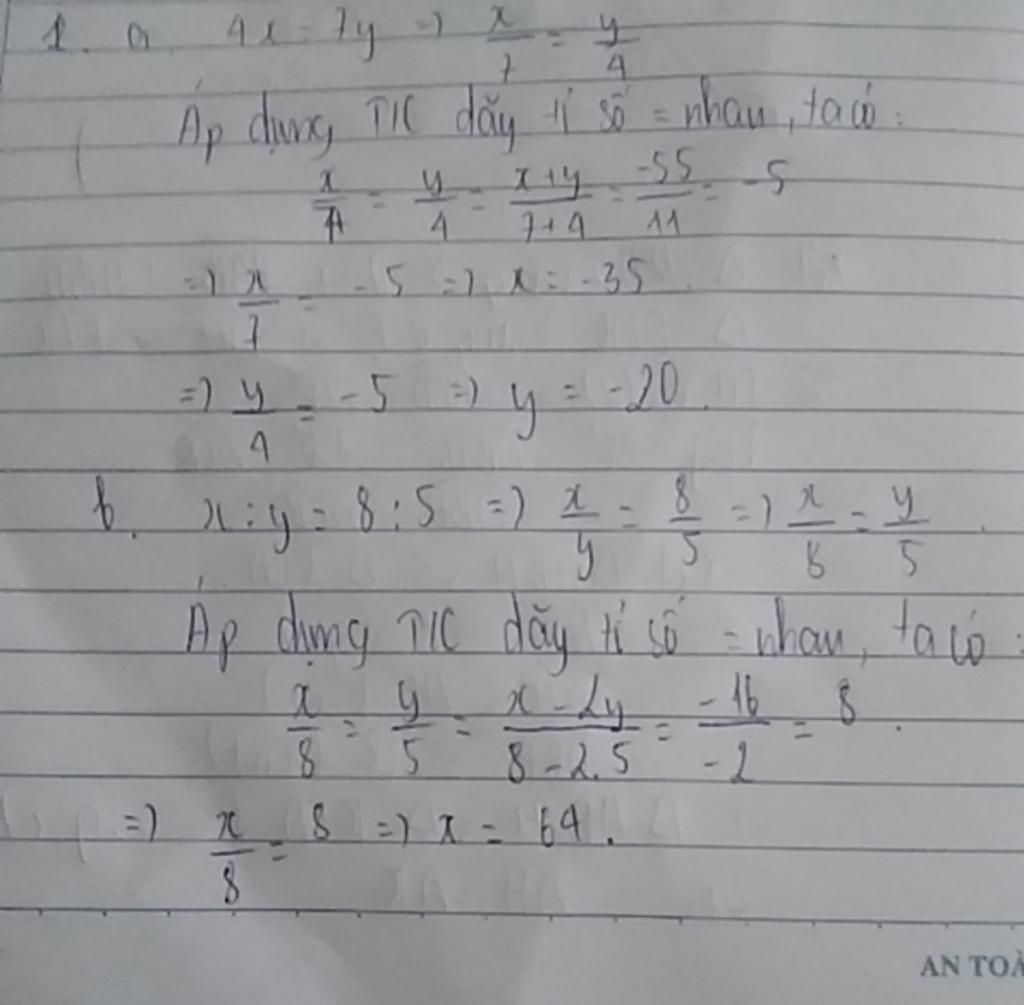 1. a 4x = 7y => x/7 = y/4
Áp dụng T/C dãy tỉ số = nhau, ta có:
x/7 = y/4 = x+y/7+4 = -55/11 = -5
=> x/7 = -5 => x = -35
=> y/4 = -5 => y = -20.
b. x : y = 8 : 5 => x/y = 8/5 => x/8 = y/5.
Áp dụng T/C dãy tỉ số = nhau, ta có:
x/8 = y/5 = x - 2y/8 - 2.5 = -16/-2 = 8.
=> x/8 = 8 => x = 64.
AN TOÀ